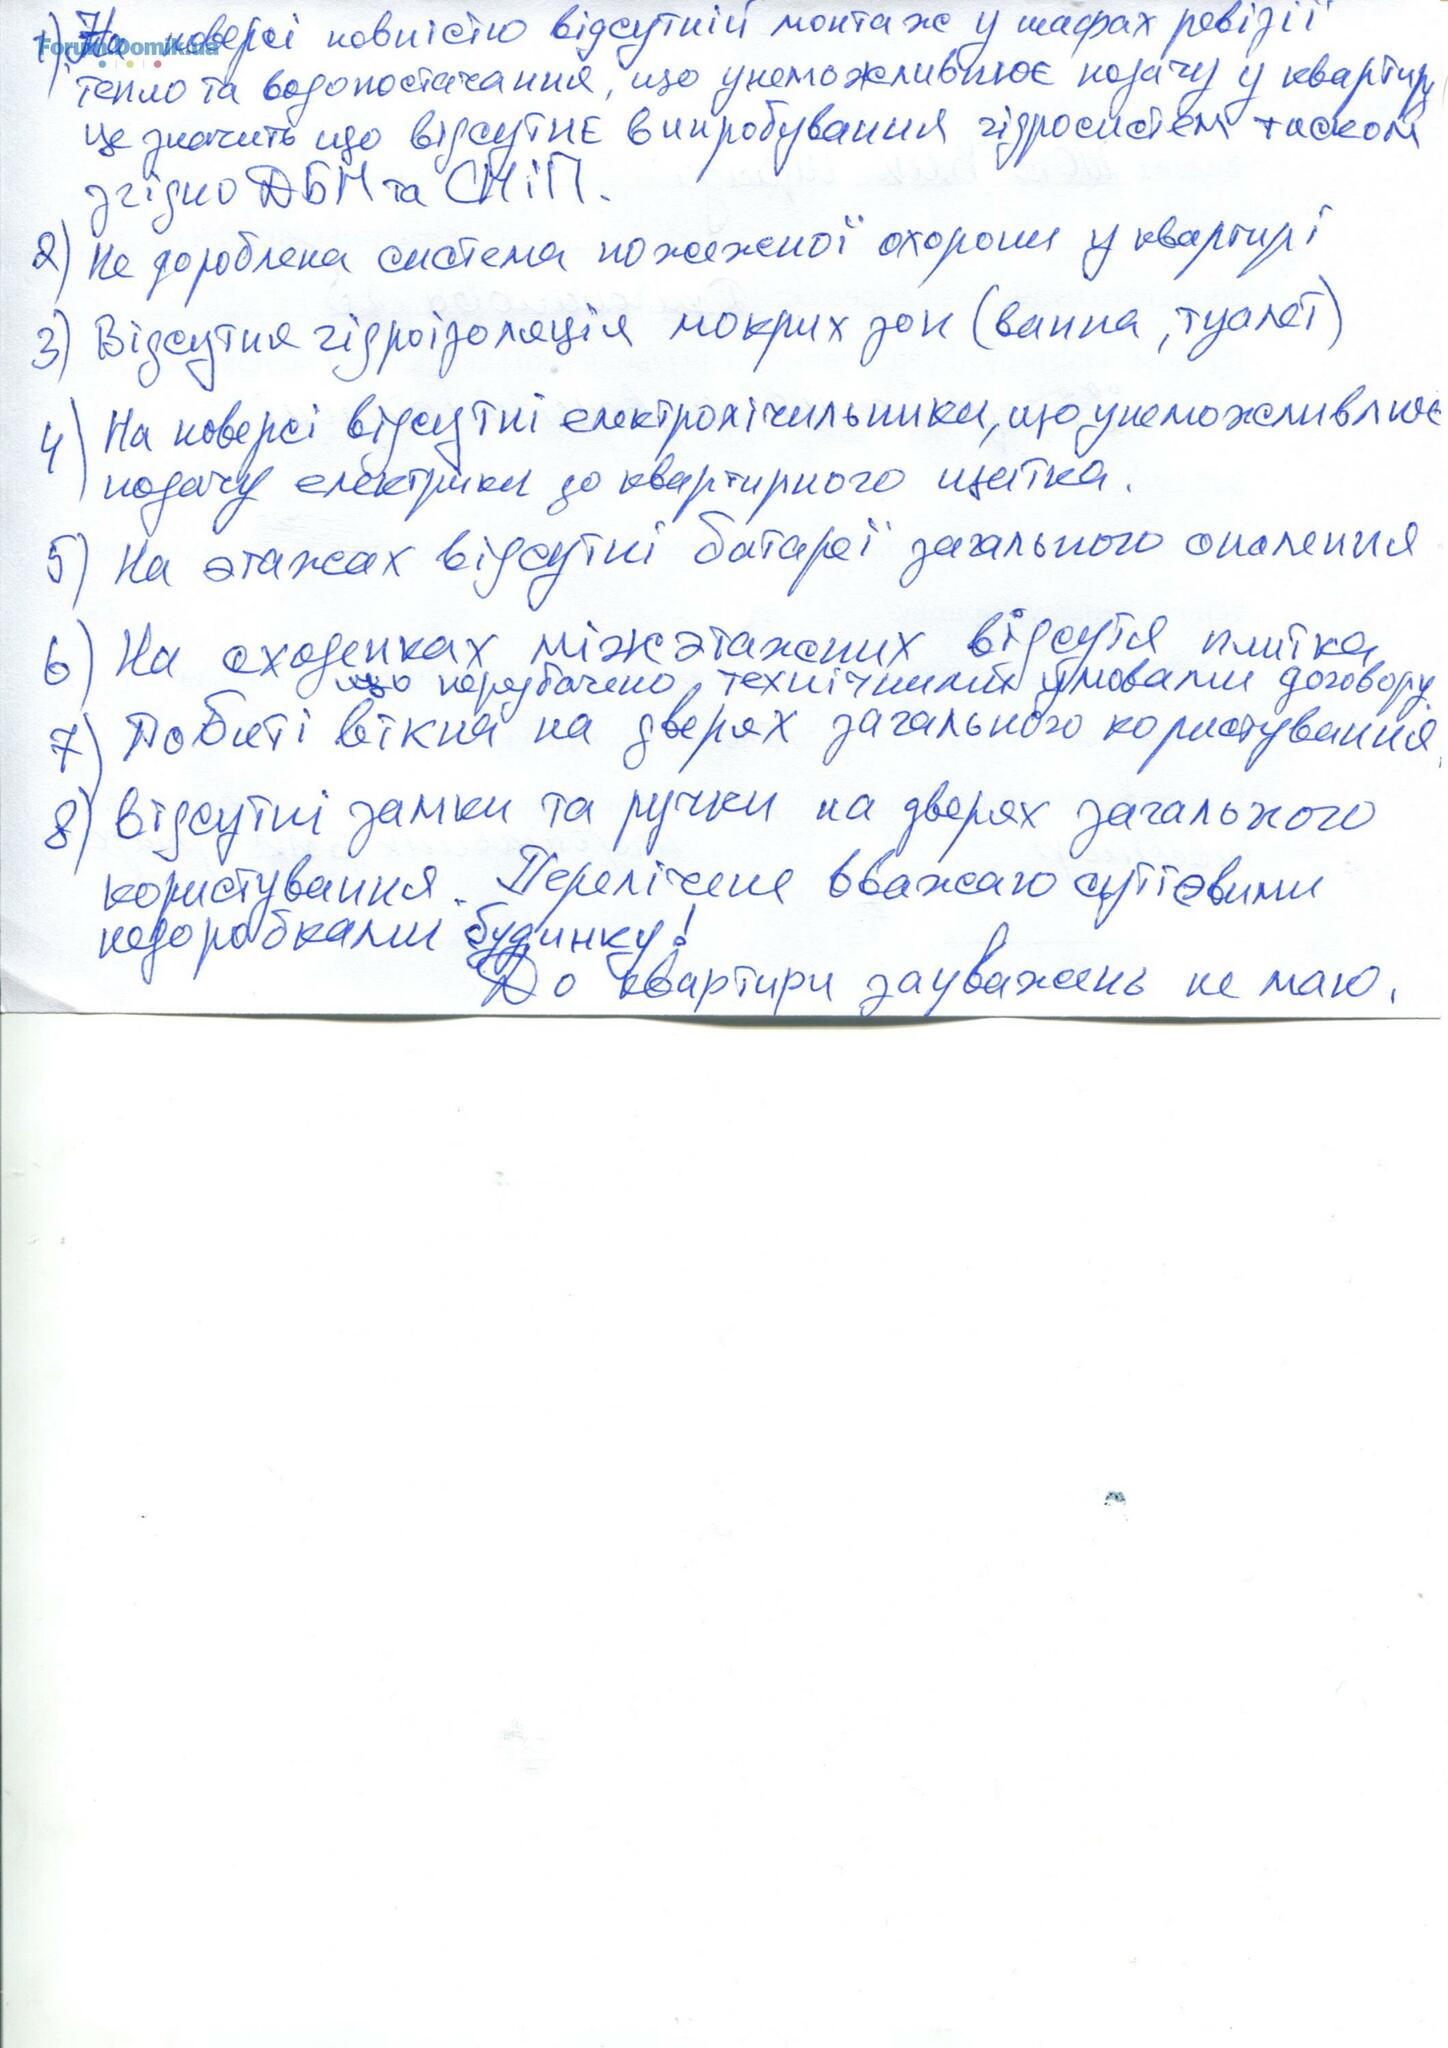 1) На поверсі повністю відсутній монтаж у шафах ревізії
Forum.Domik.ua
тепло та водопостачання, що унеможливлює подачу у квартиру
це значить що відсутнє випробування гідросистем тиском
згідно ДБН та СНіП.
2) Не дороблена система пожежної охорони у квартирі
3) Відсутня гідроізоляція мокрих зон (ванна, туалет)
4) На поверсі відсутні електролічильники, що унеможливлює
подачу електрики до квартирного щитка.
5) На этажах відсутні батареї загального опалення
6) На сходенках міжэтажних відсутя плитка
що передбачено технічними умовами договору
7) Побиті вікна на дверях загального користування.
8) Відсутні замки та ручки на дверях загального
користування. Перелічене вважаю суттєвими
недоробками будинку!
До квартири зауважень не маю.